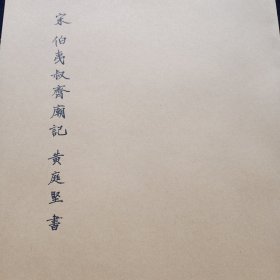 宋 伯夷叔齊廟記 黄庭堅 書